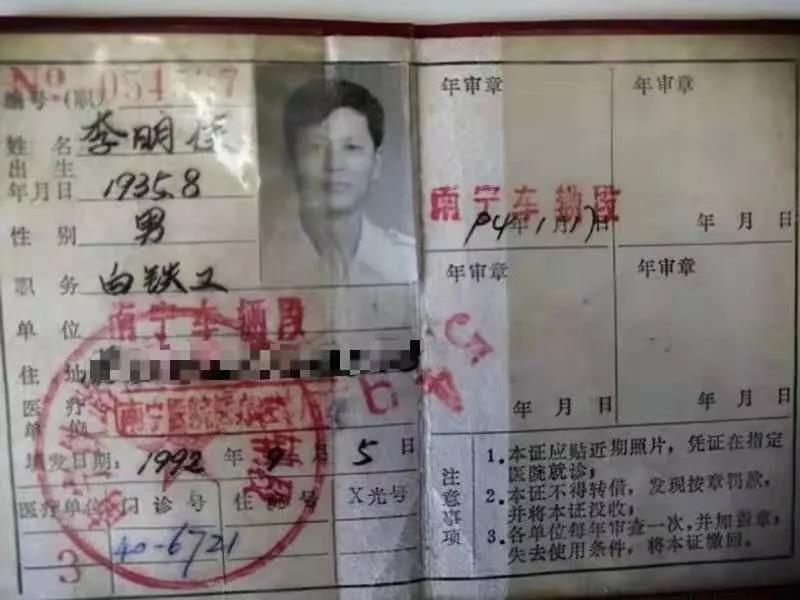 No 054
编号(职)
姓名 李明
出生
年月日 1935.8
性别 男
职务 白铁工
单位 南宁车辆段
住址
医疗
单位
填发日期: 1992 年 9 月 5 日
医疗单位 门诊号 住院号 X光号
3 40-6721
年审章 年审章
南宁车辆段
94年1月17日 年 月 日
年审章 年审章
年 月 日 年 月 日
注意事项
1.本证应贴近期照片,凭证在指定
医院就诊;
2.本证不得转借,发现按章罚款,
并将本证没收;
3.各单位每年审查一次,并加盖章,
失去使用条件,将本证缴回。